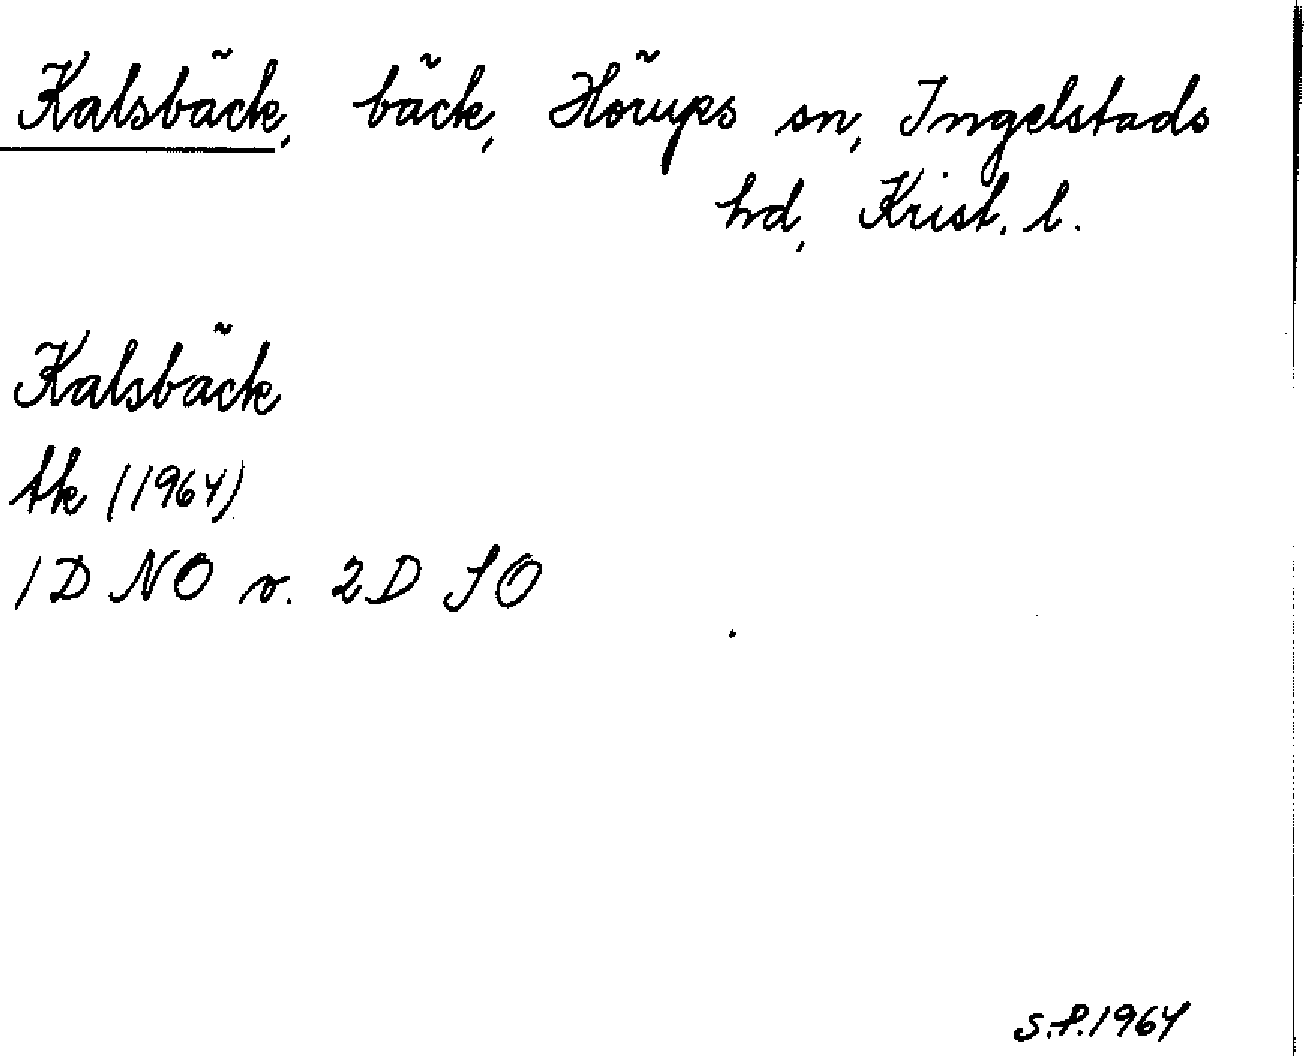 Kalsbäck, bäck, Hörups sn, Ingelstads
hd, Krist. l.
Kalsbäck
tk (1964)
1D NO o. 2D SO
S.P.1964